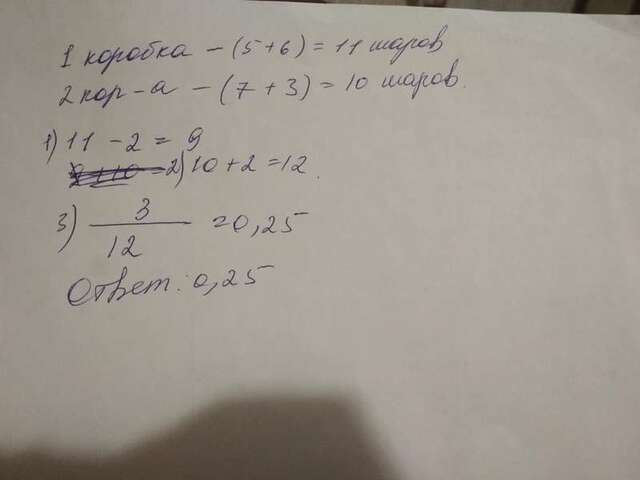 1 коробка - (5+6) = 11 шаров
2 кор-а - (7 + 3) = 10 шаров.
1) 11 - 2 = 9
2) 10 + 2 = 12.
3) 3/12 = 0,25
Ответ: 0,25